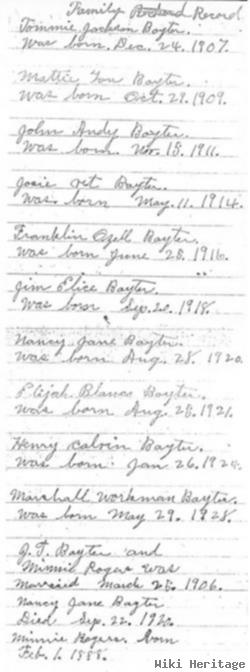 Family Record Record
Tommie Jackson Baxter.
Was born. Dec. 24. 1907.
Mattie Lou Baxter.
was born Oct. 29. 1909.
John Andy Baxter.
Was born. Nov. 18. 1911.
Josie vet Baxter.
was. born May. 11. 1914.
Franklin Ozell Baxter.
was born June 28. 1916.
Jim Elice Baxter.
Was born Sep. 20. 1918.
Nancy Jane Baxter.
was born Aug. 28. 1920.
Elijah Blanco Baxter.
was born Aug. 28. 1921.
Henry calvin Baxter.
was born Jan 26.
Marshall Workman Baxter.
was born May 29. 1928.
J. T. Baxter and
Minnie Rogers was
Married March 28. 1906.
Nancy Jane Baxter
Died Sep. 22. 1920.
Minnie Rogers. born
Feb. 1. 1888.
Wiki Heritage